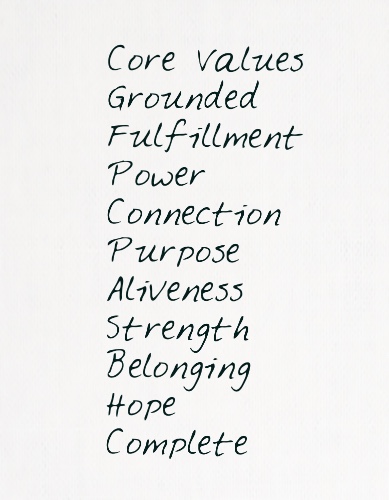 Core Values
Grounded
Fulfillment
Power
Connection
Purpose
Aliveness
Strength
Belonging
Hope
Complete